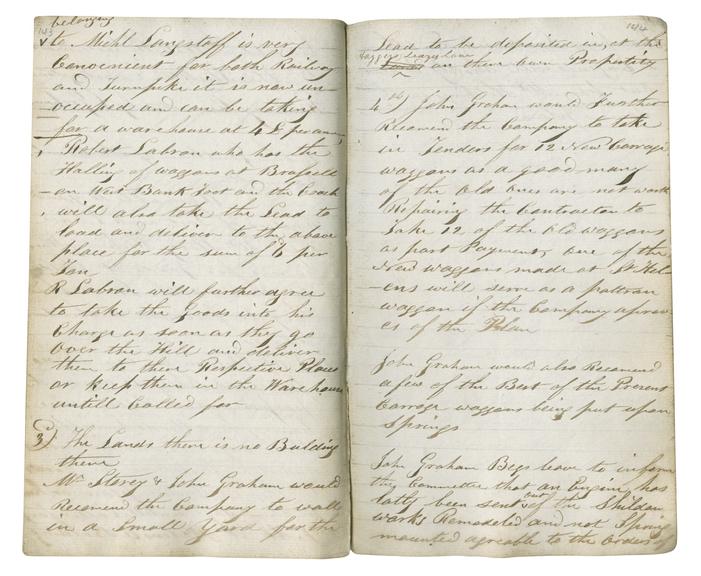 143
belonging
to Michl Langstaff is very
Convenient for both Railway
and Turnpike it is now un
ocupied and can be taking
for a warehouse at 4£ per annum
Robert Labron who has the
Halling of waggons at Brusselt
on West Bank foot and the Coach
will also take the Lead to
load and deliver to the above
place for the sum of per
Ton
R Labron will further agree
to take the goods into his
Charge as soon as they go
over the Hill and deliver
them to there Respective Places
or keep them in the Warehouse
untill Called for
3) The Lands there is no Building
there
Mr Storey & John Graham would
Recomend the Company to wall
in a Small Yard for the
144
Lead to be deposited in, at the
Lane
on there Own Property
4th) John Graham would Further
Recomend the Company to take
in Tenders for 12 New Carrage
waggons as a good many
of the Old Ones are not worth
Repairing the Contractor to
Take 12 of the Old waggons
as part Payment, one of the
New waggons made at St Hel
-ens will serve as a pattran
waggon if the Company aprov
es of the Plan
John Graham would also Recomend
a few of the Best of the Present
Carrage waggons being put upon
Springs
John Graham Begs leave to inform
the Committee that an Engine has
latly been sent out of the Shildon
works Remodeled and not Spring
mounted agreable to the Orders of